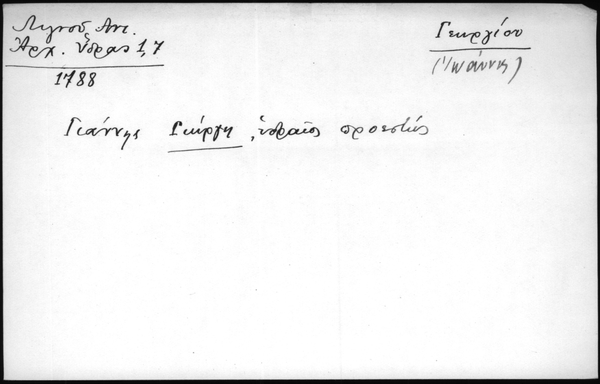 Λιγνοῦ Ἀντ.
Ἀρχ. Ὕδρας 1,7
1788
Γεωργίου
(Ἰωάννης)
Γιάννης Γιώργη, ὑδραῖος προεστώς